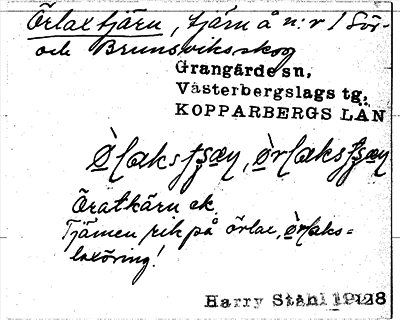 Örlax tjärn, tjärn å n:r 1 Sör-
och Brunsviks skog
Grangärde sn,
Västerbergslags tg.
KOPPARBERGS LÄN
Öratkärn ek.
Tjärnen rik på örlax,
laxöring!
Harry Ståhl 1928